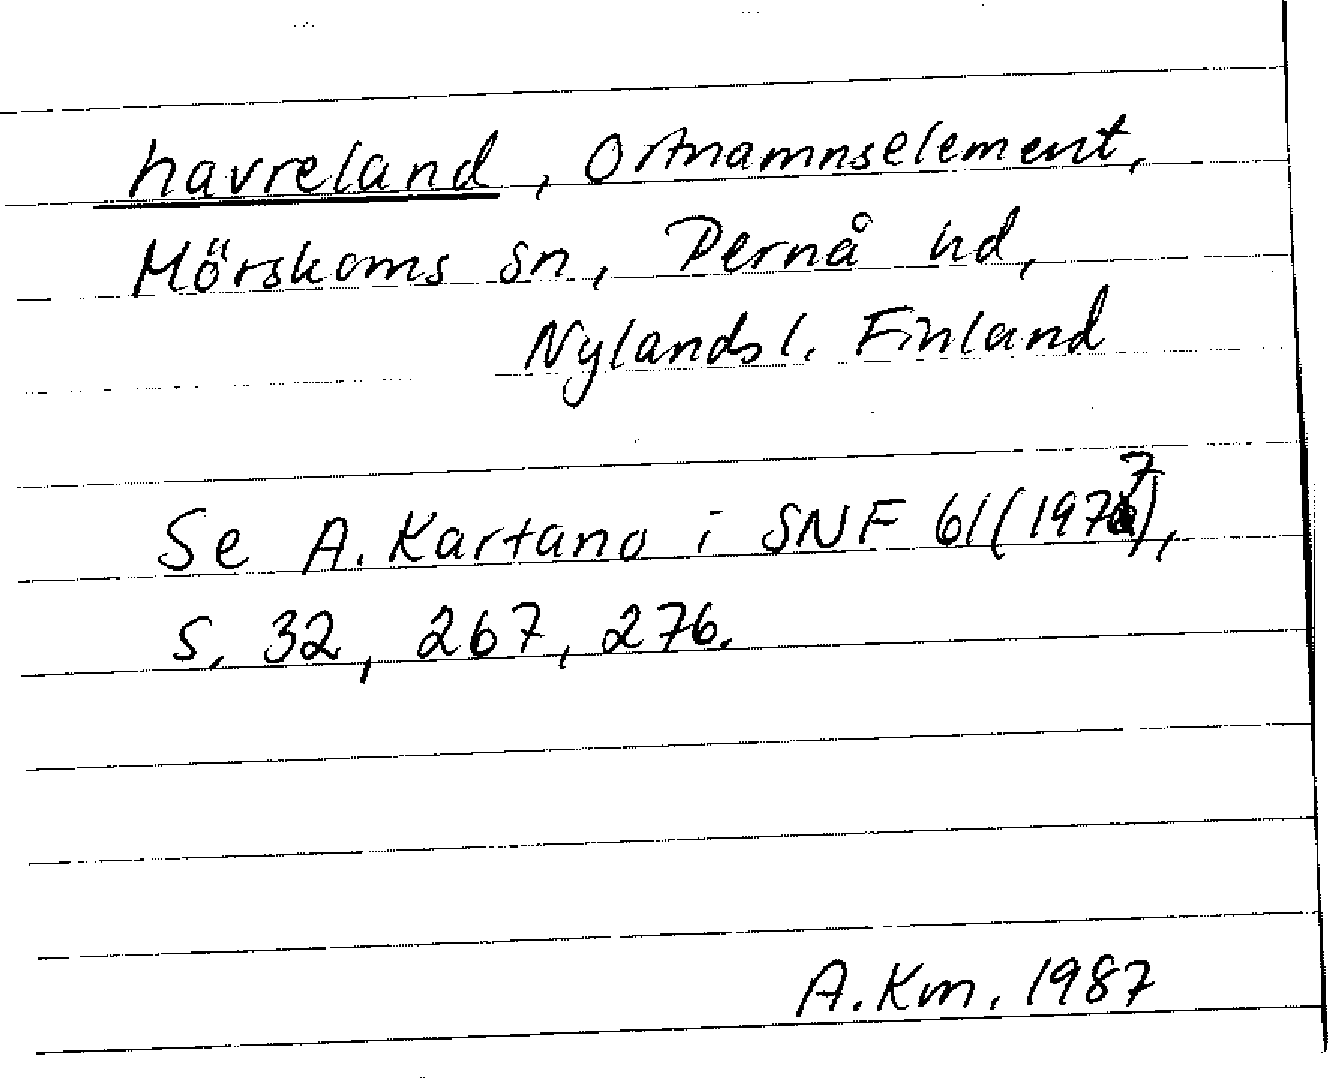 havreland, Ortnamnselement,
Mörskoms sn, Pernå hd,
Nylands l. Finland
Se A. Kartano i SNF 61 (1977),
S. 32, 267, 276.
A. Km. 1987